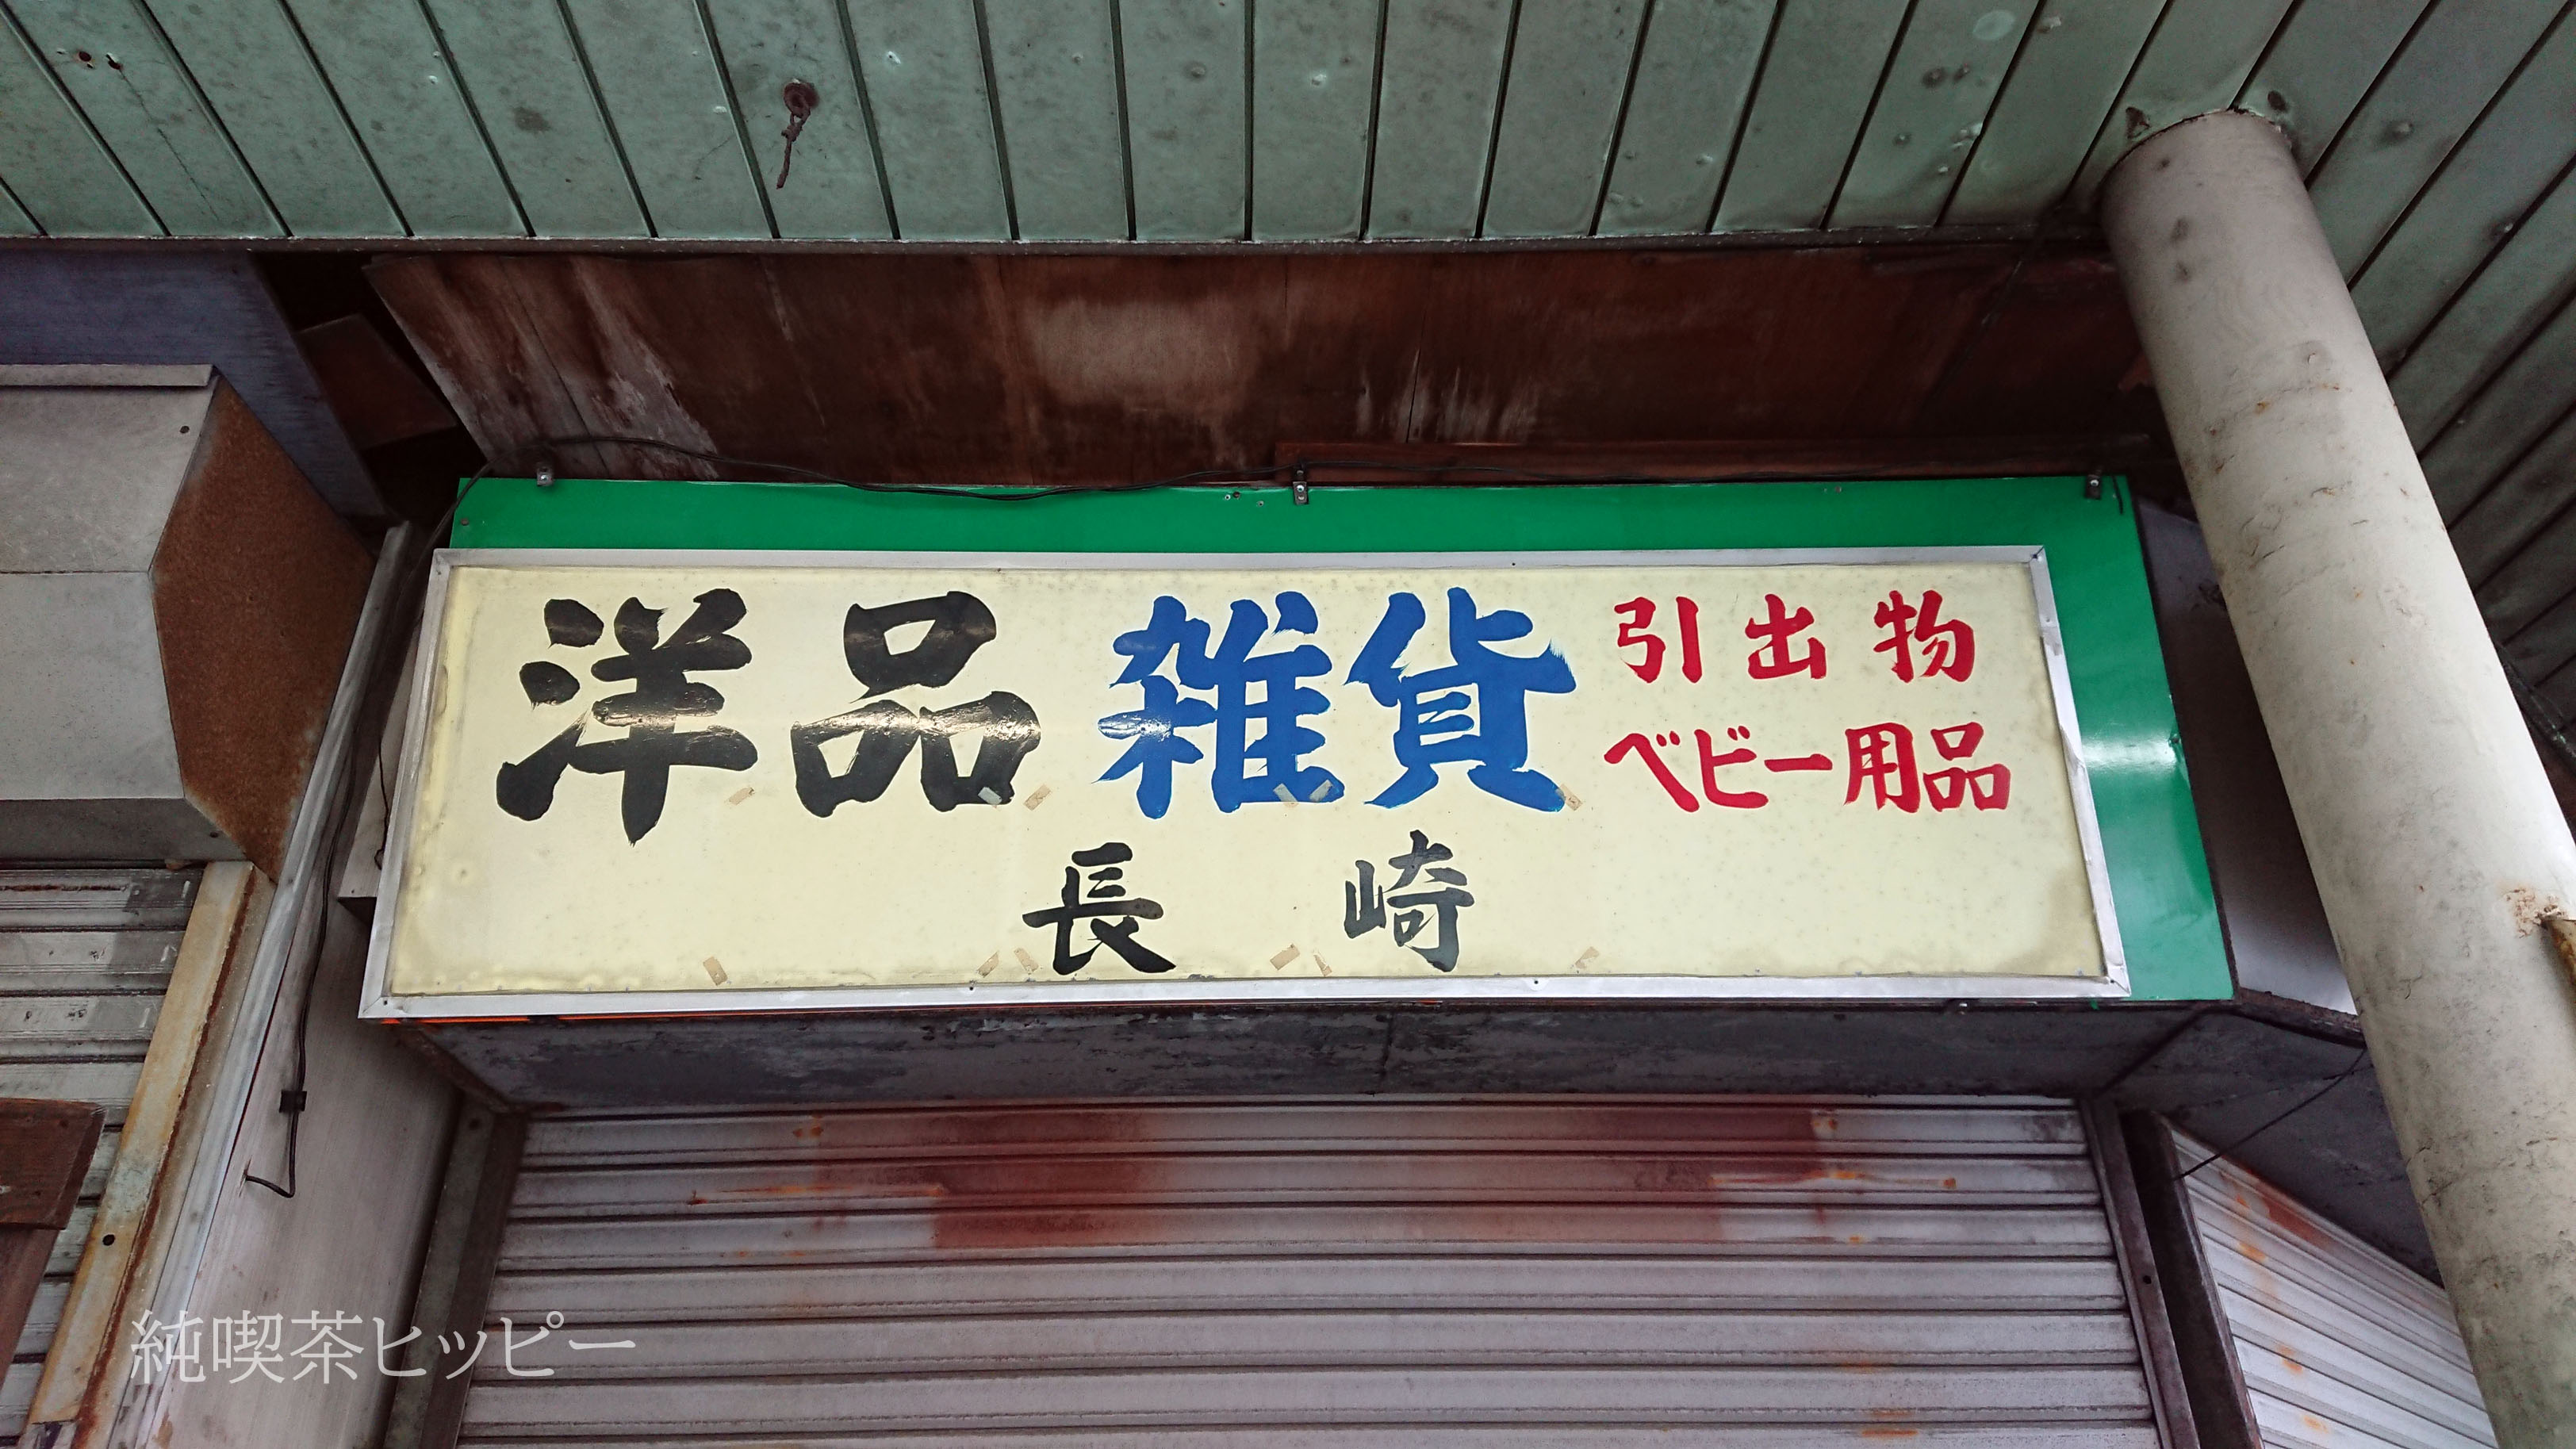 洋品 雑貨 引出物
ベビー用品
長崎
純喫茶ヒッピー